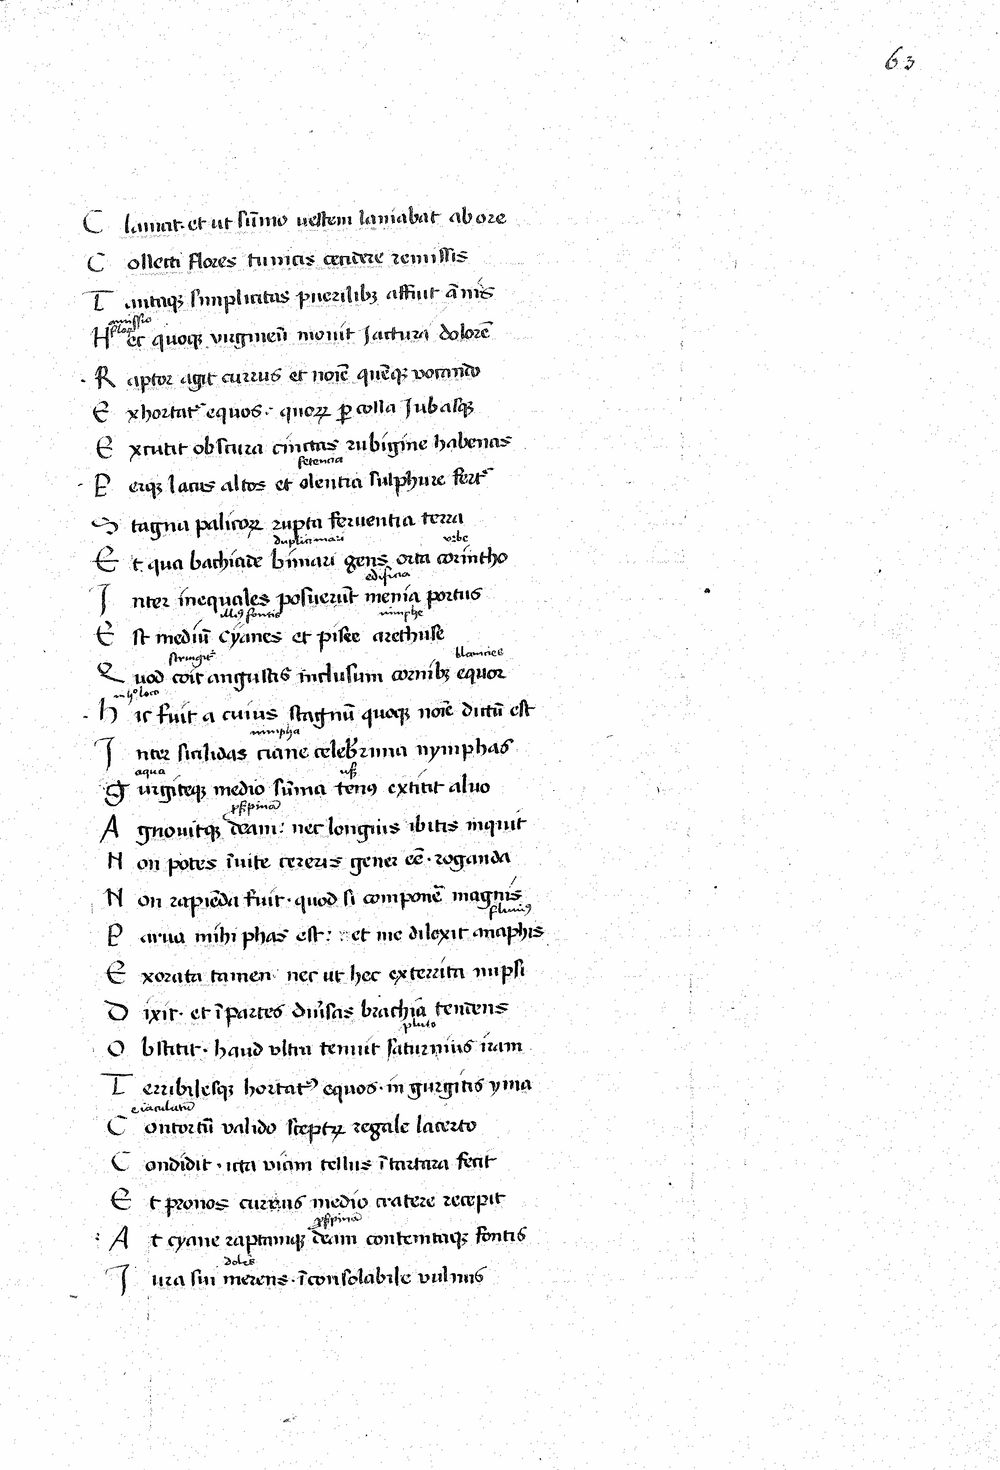 63
C lamat. et ut sūmo uestem laniabat ab ore
C ollecti flores tunicis cecidere remissis
T antaqꝫ simplicitas puerilibꝫ affuit ānis
amissio
floꝝ
H ec quoqꝫ virgineū mouit Jactura dolorē
R aptor agit currus et noīe quēqꝫ vocando
E xhortat᷑ equos. quoꝝ ꝑ colla Jubasqꝫ
E xcutit obscura cinctas rubigine habenas
fetencia
P erqꝫ lacus altos et olentia sulphure fert᷑
S tagna palicoꝝ rupta feruentia terra
duplici mari vrbe
E t qua bachiade bimari gens orta corintho
edificia
J nter inequales posuerūt menia portus
illiꝰ fontis nimphe
E st mediū Cyanes et pisee arethuse
stringit᷑ planicies
Q uod coit angustis inclusum cornibꝫ equor
loco
h ic fuit a cuius stagnū quoqꝫ noīe dictū est
nimpha
J nter sicilidas ciane celeb̄rima nymphas
aqua usqꝫ
G urgiteqꝫ medio sūma tenꝰ extitit aluo
ꝓs̄pinā
A gnouitqꝫ deam: nec longius ibitis inquit
N on potes īuite cereris gener eē. roganda
N on rapiēda fuit. quod si componē᷑ magnis
fluuiꝰ
P arua mihi phas est: et me dilexit anaphis
E xorata tamen nec ut hec exterrita nupsi
D ixit. et ī partes diu̓sas brachia tendens
pluto
O bstitit. haud vltra tenuit saturnius iram
T erribilesqꝫ hortatꝰ equos. in gurgitis yma
eiaculatū
C ontortū valido sceptꝝ regale lacerto
C ondidit. icta viam tellus ī tartara fecit
E t pronos currus medio cratere recepit
ꝓs̄pinā
A t cyane raptamqꝫ deam contemtaqꝫ fontis
dolēs
J ura sui merens. īconsolabile vulnus